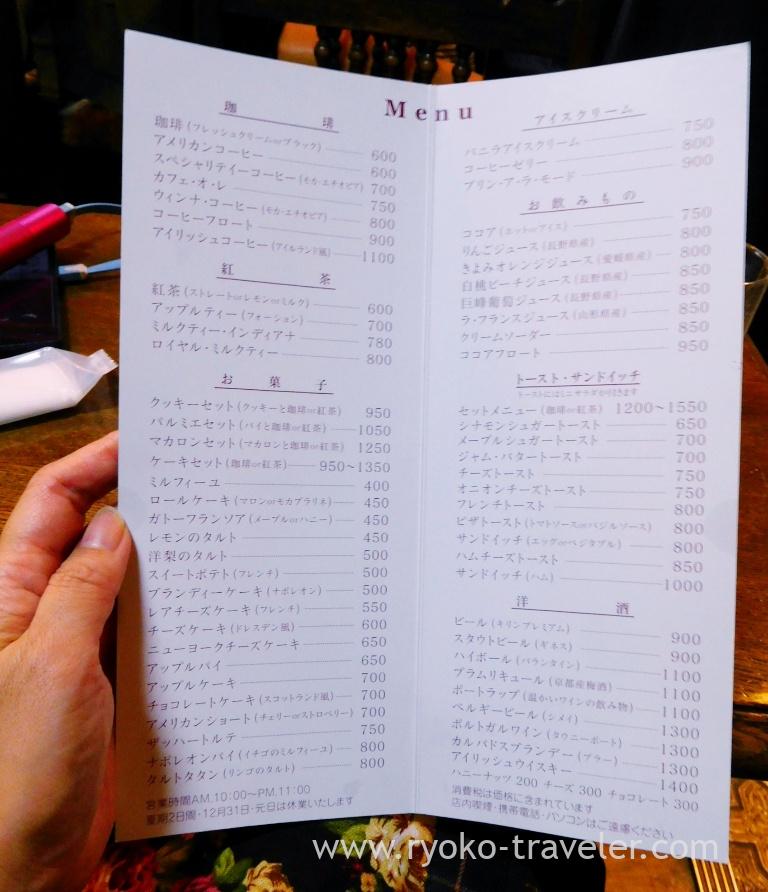 Menu
珈琲
珈琲 (フレッシュクリームorブラック) 600
アメリカンコーヒー 600
スペシャリティーコーヒー (モカ・エチオピア) 700
カフェ・オ・レ 750
ウィンナ・コーヒー (モカ・エチオピア) 800
コーヒーフロート 900
アイリッシュコーヒー (アイルランド風) 1100
紅茶
紅茶 (ストレートorレモンorミルク) 600
アップルティー (フォーション) 700
ミルクティー・インディアナ 780
ロイヤル・ミルクティー 800
お菓子
クッキーセット (クッキーと珈琲or紅茶) 950
パルミエセット (パイと珈琲or紅茶) 1050
マカロンセット (マカロンと珈琲or紅茶) 1250
ケーキセット (珈琲or紅茶) 950~1350
ミルフィーユ 400
ロールケーキ (マロンorモカプラリネ) 450
ガトーフランソア (メープルorハニー) 450
レモンのタルト 450
洋梨のタルト 500
スイートポテト (フレンチ) 500
ブランディーケーキ (ナポレオン) 500
レアチーズケーキ (フレンチ) 550
チーズケーキ (ドレスデン風) 600
ニューヨークチーズケーキ 650
アップルパイ 650
アップルケーキ 700
チョコレートケーキ (スコットランド風) 700
アメリカンショート (チェリーorストロベリー) 700
ザッハートルテ 750
ナポレオンパイ (イチゴのミルフィーユ) 800
タルトタタン (リンゴのタルト) 800
営業時間AM.10:00~PM.11:00
夏期2日間・12月31日・元日は休業いたします
アイスクリーム
バニラアイスクリーム 750
コーヒーゼリー 800
プリン・ア・ラ・モード 900
お飲みもの
ココア (ホットorアイス) 750
りんごジュース (長野県産) 800
きよみオレンジジュース (愛媛県産) 800
白桃ピーチジュース (長野県産) 850
巨峰葡萄ジュース (長野県産) 850
ラ・フランスジュース (山形県産) 850
クリームソーダー 850
ココアフロート 950
トースト・サンドイッチ
トーストにはミニサラダが付きます
セットメニュー (珈琲or紅茶) 1200~1550
シナモンシュガートースト 650
メープルシュガートースト 700
ジャム・バタートースト 700
チーズトースト 750
オニオンチーズトースト 750
フレンチトースト 800
ピザトースト (トマトソースorバジルソース) 800
サンドイッチ (エッグorベジタブル) 800
ハムチーズトースト 850
サンドイッチ (ハム) 1000
洋酒
ビール (キリンプレミアム) 900
スタウトビール (ギネス) 900
ハイボール (バランタイン) 1100
プラムリキュール (京都産梅酒) 1100
ポートラップ (温かいワインの飲み物) 1100
ベルギービール (シメイ) 1300
ポルトガルワイン (タウニーポート) 1300
カルバドスブランデー (ブラー) 1300
アイリッシュウイスキー 1400
ハニーナッツ 200 チーズ 300 チョコレート 300
消費税は価格に含まれています
店内喫煙・携帯電話・パソコンはご遠慮ください
www.ryoko-traveler.com